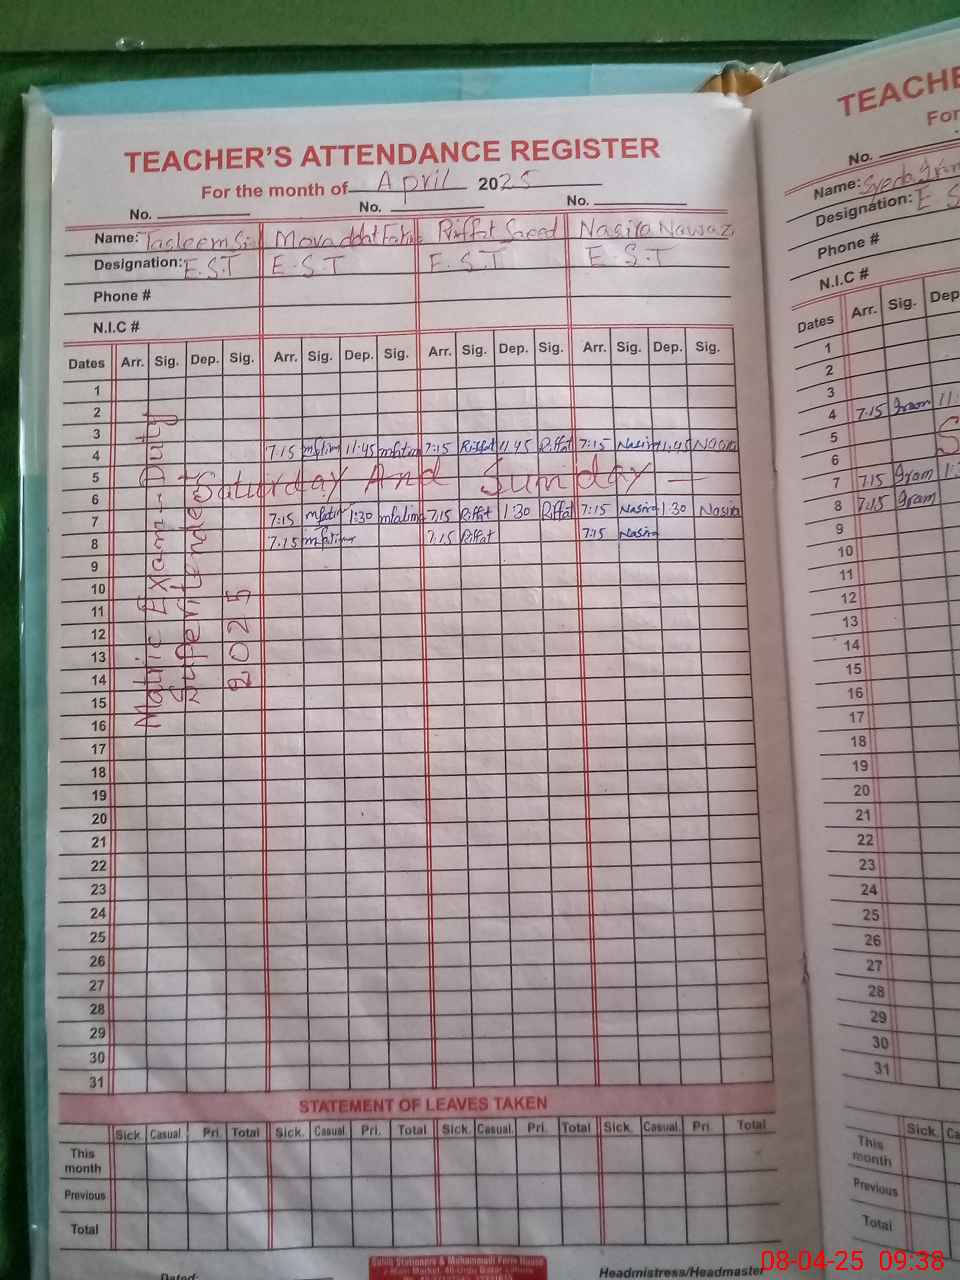 TEACHER'S ATTENDANCE REGISTER
For the month of April 2025
No. No. No.
Name: Tasleem Movaddat Riffat Saeed Nasira Nawaz
Designation: E.S.T E.S.T E.S.T E.S.T
Phone #
N.I.C #
Dates Arr. Sig. Dep. Sig. Arr. Sig. Dep. Sig. Arr. Sig. Dep. Sig. Arr. Sig. Dep. Sig.
1
2
3
4 7:15 mfatima 11:45 mfatima 7:15 Riffat 11.45 Riffat 7:15 Nasira 11.45 Nasira
5 Saturday And Sunday
6
7 7:15 mfatima 1:30 mfatima 7:15 Riffat 1:30 Riffat 7:15 Nasira 1:30 Nasira
8 7:15 mfatima 7:15 Riffat 7:15 Nasira
9
10
11
12
13
14
15
16
17
18
19
20
21
22
23
24
25
26
27
28
29
30
31
Matric Exam - Duty
Superitendent
2025
STATEMENT OF LEAVES TAKEN
Sick. Casual Pri. Total Sick. Casual. Pri. Total Sick. Casual. Pri. Total Sick. Casual. Pri. Total
This month
Previous
Total
Dated:
Headmistress/Headmaster
TEACHE
For
No.
Name: Syeda
Designation: E S
Phone #
N.I.C #
Dates Arr. Sig. Dep
1
2
3
4 7:15 gram 11:
5 S
6
7 7:15 gram 1:
8 7:15 gram
9
10
11
12
13
14
15
16
17
18
19
20
21
22
23
24
25
26
27
28
29
30
31
Sick. Ca
This month
Previous
Total
08-04-25 09:38